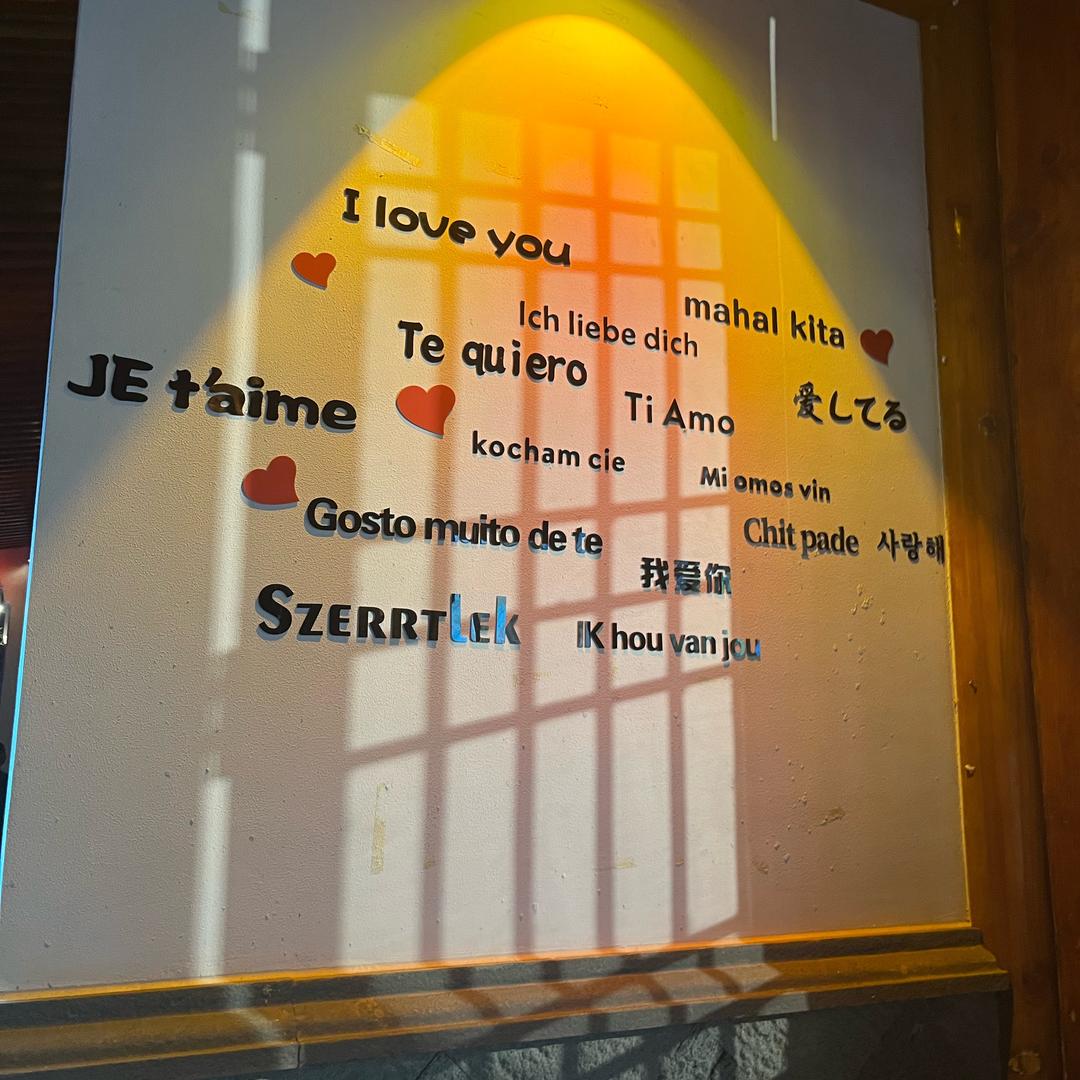 I love you
mahal kita
Ich liebe dich
Te quiero
JE t'aime
Ti Amo
愛してる
kocham cie
Mi omos vin
Gosto muito de te
Chit pade
사랑해
我爱你
SZERRTlEk
IK hou van jou